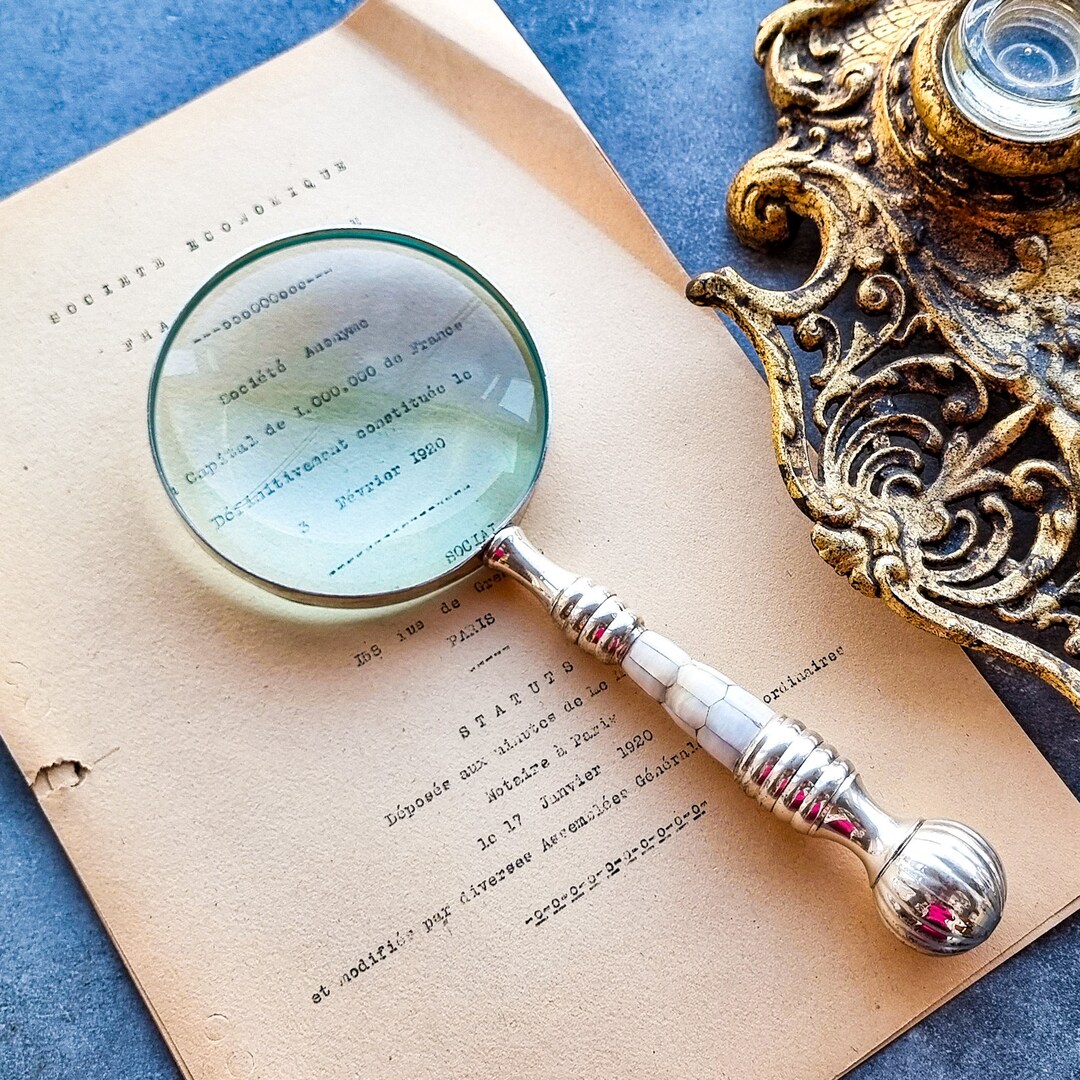 SOCIETE ECONOMIQUE
FRA N
---oooOOOooo---
Société Anonyme
Capital de 1.000.000 de Francs
Définitivement constituée le
3 Février 1920
---------------
SOCIAL
de
PARIS
-----
STATUTS
Déposés aux minutes de
Notaire à Paris
le 17 Janvier 1920
et modifiés par diverses Assemblées Générales ordinaires
-o-o-o-o-o-o-o-o-o-